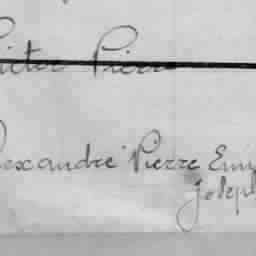 Victor Pierre
Alexandre Pierre Emi
Joseph